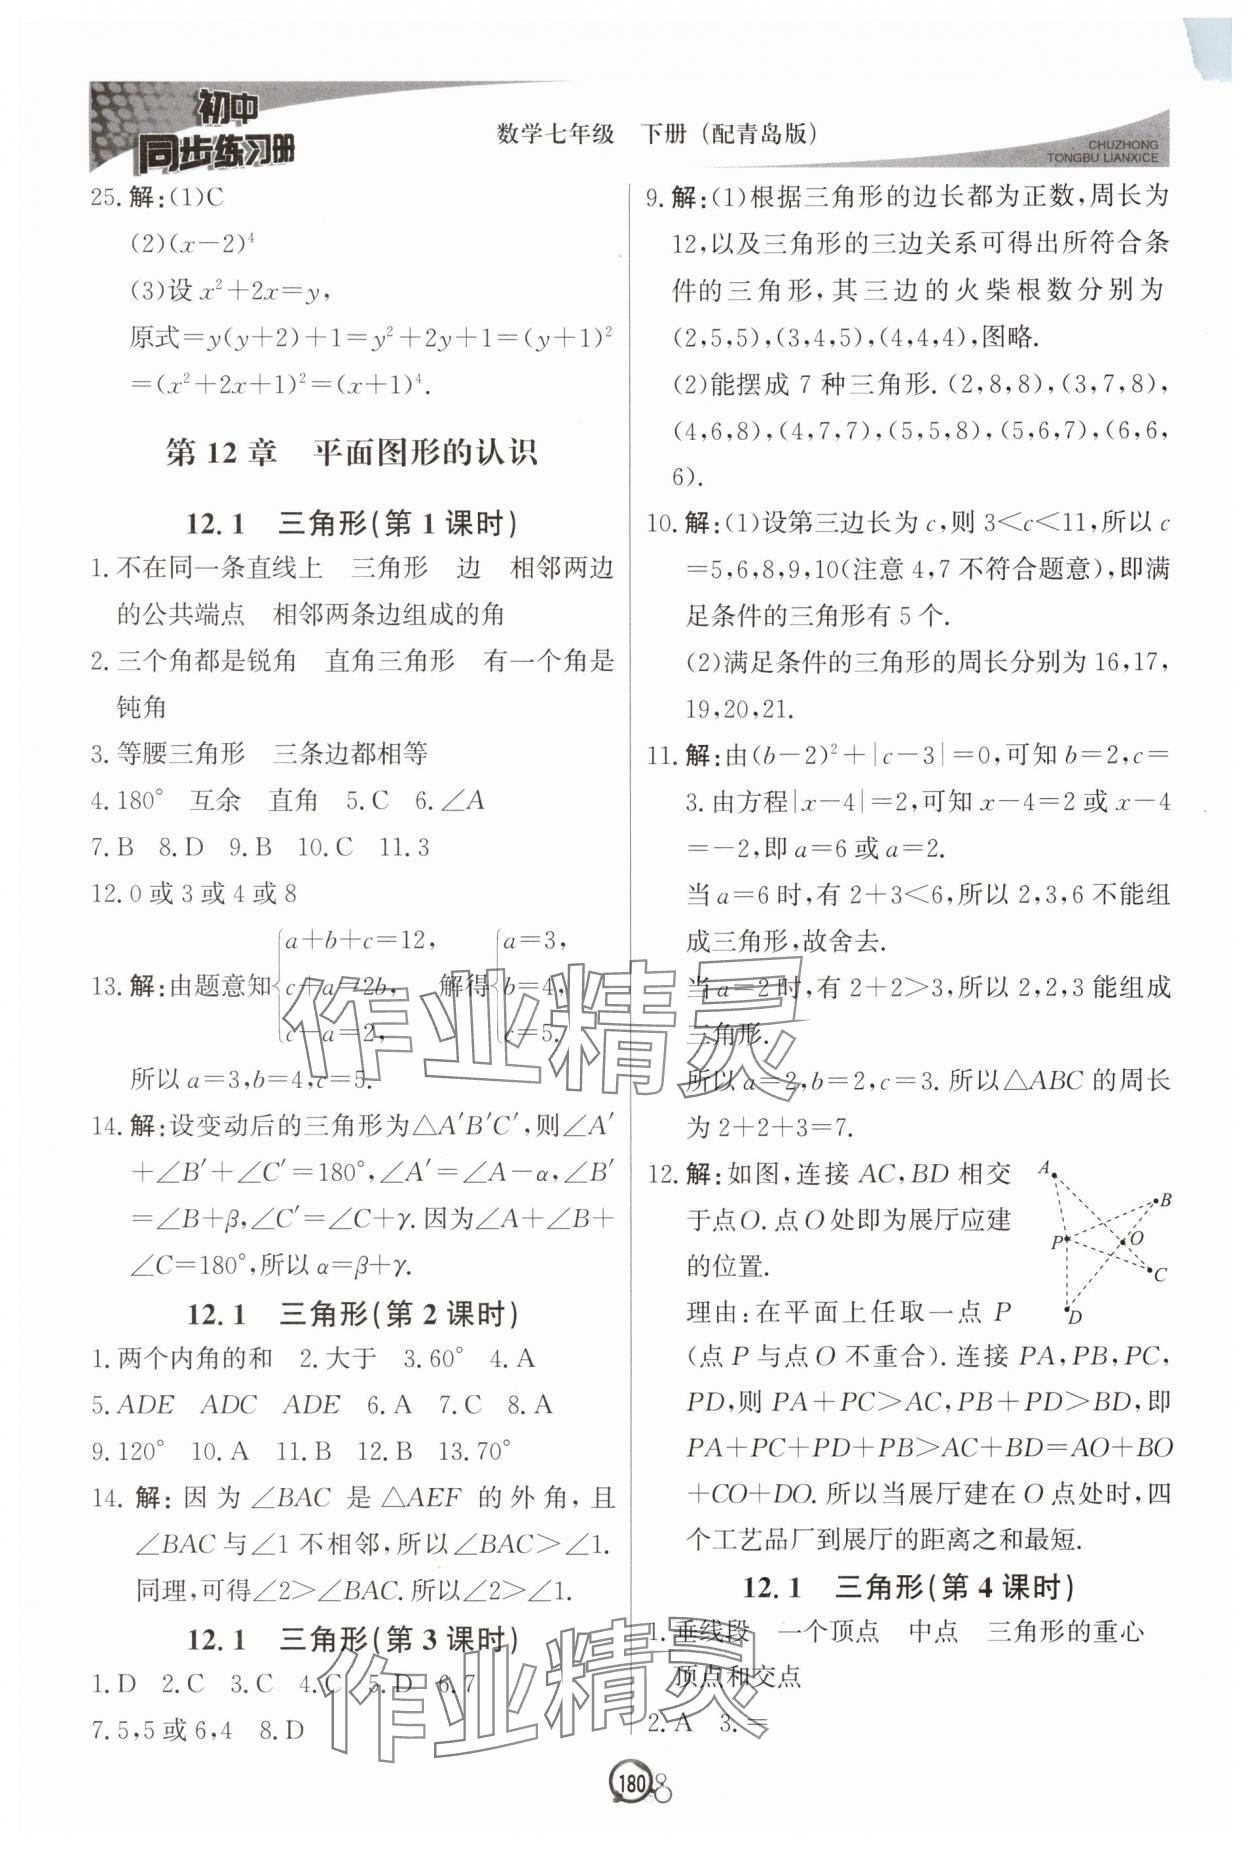 初中
同步练习册
数学七年级 下册（配青岛版）
CHUZHONG
TONGBU LIANXICE
25. 解:(1)C
(2)(x−2)⁴
(3)设 x²+2x=y,
原式=y(y+2)+1=y²+2y+1=(y+1)²
=(x²+2x+1)²=(x+1)⁴.
第 12 章 平面图形的认识
12.1 三角形(第 1 课时)
1. 不在同一条直线上 三角形 边 相邻两边
的公共端点 相邻两条边组成的角
2. 三个角都是锐角 直角三角形 有一个角是
钝角
3. 等腰三角形 三条边都相等
4. 180° 互余 直角 5. C 6. ∠A
7. B 8. D 9. B 10. C 11. 3
12. 0 或 3 或 4 或 8
a+b+c=12, a=3,
13. 解:由题意知 c+a=2b, 解得 b=4,
c−a=2, c=5.
所以 a=3,b=4,c=5.
14. 解:设变动后的三角形为△A′B′C′,则∠A′
+∠B′+∠C′=180°,∠A′=∠A−α,∠B′
=∠B+β,∠C′=∠C+γ.因为∠A+∠B+
∠C=180°,所以 α=β+γ.
12.1 三角形(第 2 课时)
1. 两个内角的和 2. 大于 3. 60° 4. A
5. ADE ADC ADE 6. A 7. C 8. A
9. 120° 10. A 11. B 12. B 13. 70°
14. 解: 因为 ∠BAC 是 △AEF 的外角, 且
∠BAC 与∠1 不相邻,所以∠BAC>∠1.
同理,可得∠2>∠BAC.所以∠2>∠1.
12.1 三角形(第 3 课时)
1. D 2. C 3. C 4. C 5. D 6. 7
7. 5,5 或 6,4 8. D
9. 解:(1)根据三角形的边长都为正数,周长为
12,以及三角形的三边关系可得出所符合条
件的三角形,其三边的火柴根数分别为
(2,5,5),(3,4,5),(4,4,4),图略.
(2)能摆成 7 种三角形. (2,8,8),(3,7,8),
(4,6,8),(4,7,7),(5,5,8),(5,6,7),(6,6,
6).
10. 解:(1)设第三边长为 c,则 3<c<11,所以 c
=5,6,8,9,10(注意 4,7 不符合题意),即满
足条件的三角形有 5 个.
(2)满足条件的三角形的周长分别为 16,17,
19,20,21.
11. 解:由(b−2)²+|c−3|=0,可知 b=2,c=
3. 由方程|x−4|=2,可知 x−4=2 或 x−4
=−2,即 a=6 或 a=2.
当 a=6 时,有 2+3<6,所以 2,3,6 不能组
成三角形,故舍去.
当 a=2 时,有 2+2>3,所以 2,2,3 能组成
三角形.
所以 a=2,b=2,c=3. 所以△ABC 的周长
为 2+2+3=7.
12. 解:如图,连接 AC,BD 相交
于点O. 点 O 处即为展厅应建
的位置.
理由:在平面上任取一点 P
A
B
P
O
C
D
(点 P 与点 O 不重合). 连接 PA,PB,PC,
PD,则 PA+PC>AC,PB+PD>BD,即
PA+PC+PD+PB>AC+BD=AO+BO
+CO+DO. 所以当展厅建在 O 点处时,四
个工艺品厂到展厅的距离之和最短.
12.1 三角形(第 4 课时)
1. 垂线段 一个顶点 中点 三角形的重心
顶点和交点
2. A 3. =
作业精灵
作业精灵
180